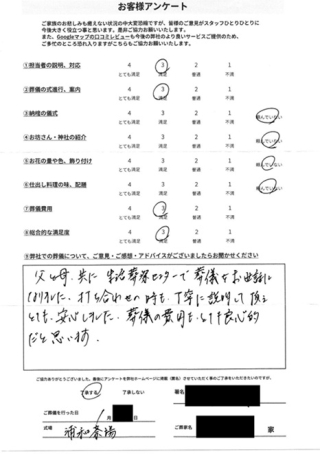 お客様アンケート
ご家族のお悲しみも癒えない状況の中大変恐縮ですが、皆様のご意見がスタッフひとりひとりに
今後大きく役立つ事と思います。是非ご協力お願いいたします。
また、Googleマップの口コミレビューも今後の弊社のより良いサービスご提供のため、
ご多忙のところ恐れ入りますがこちらもご協力お願いたします。
①担当者の説明、対応 4 3 2 1
とても満足 満足 普通 不満
②葬儀の式進行、案内 4 3 2 1
とても満足 満足 普通 不満
③納棺の儀式 4 3 2 1 頼んでいない
とても満足 満足 普通 不満
④お坊さん・神社の紹介 4 3 2 1 頼んでいない
とても満足 満足 普通 不満
⑤お花の量や色、飾り付け 4 3 2 1 頼んでいない
とても満足 満足 普通 不満
⑥仕出し料理の味、配膳 4 3 2 1 頼んでいない
とても満足 満足 普通 不満
⑦葬儀費用 4 3 2 1
とても満足 満足 普通 不満
⑧総合的な満足度 4 3 2 1
とても満足 満足 普通 不満
⑨弊社での葬儀について、ご意見・ご感想・アドバイスがございましたらお聞かせください
父と母、共に 生活葬祭センターで葬儀をお世話に
なりました。打ち合わせの時も、丁寧に説明して頂き
とても、安心しました。葬儀の費用も、とても良心的
だと思います。
ご協力ありがとうございました。最後にアンケートを弊社ホームページに掲載（匿名）させていただく事のご了承をいただきたいのですが、
了承する 了承しない 署名
ご葬儀を行った日 月 日
式場 浦和斎場 ご葬家名 家